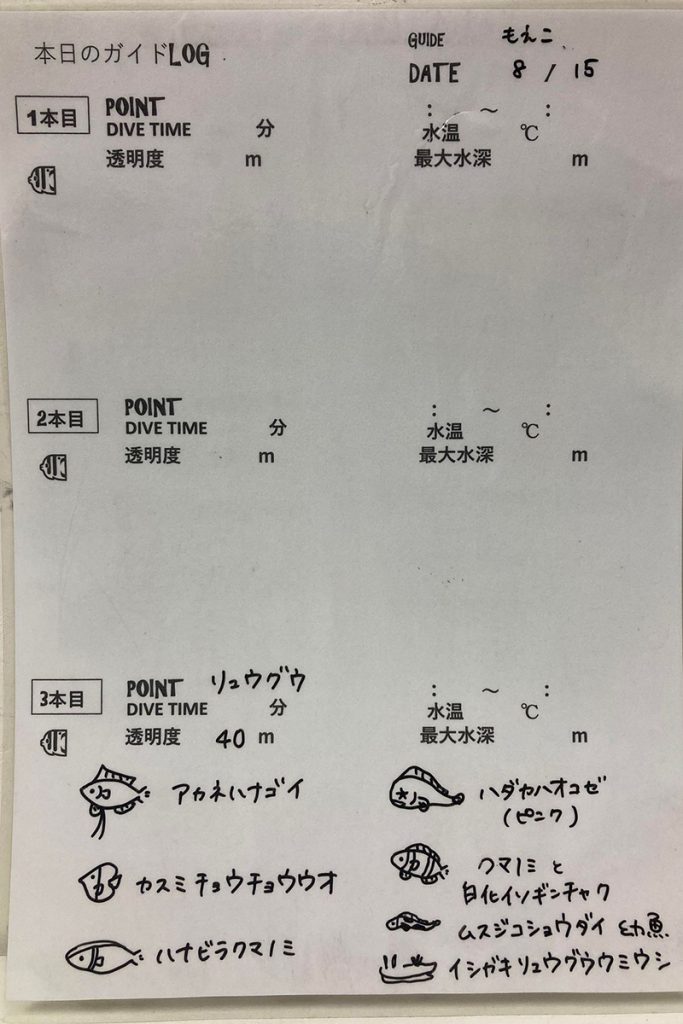 本日のガイドLOG
GUIDE もえこ
DATE 8 / 15
1本目 POINT : ～ :
DIVE TIME 分 水温 ℃
透明度 m 最大水深 m
2本目 POINT : ～ :
DIVE TIME 分 水温 ℃
透明度 m 最大水深 m
3本目 POINT リュウグウ : ～ :
DIVE TIME 分 水温 ℃
透明度 40 m 最大水深 m
アカネハナゴイ
カスミチョウチョウウオ
ハナビラクマノミ
ハダカハオコゼ
(ピンク)
クマノミと
白化イソギンチャク
ムスジコショウダイ 幼魚
イシガキリュウグウウミウシ